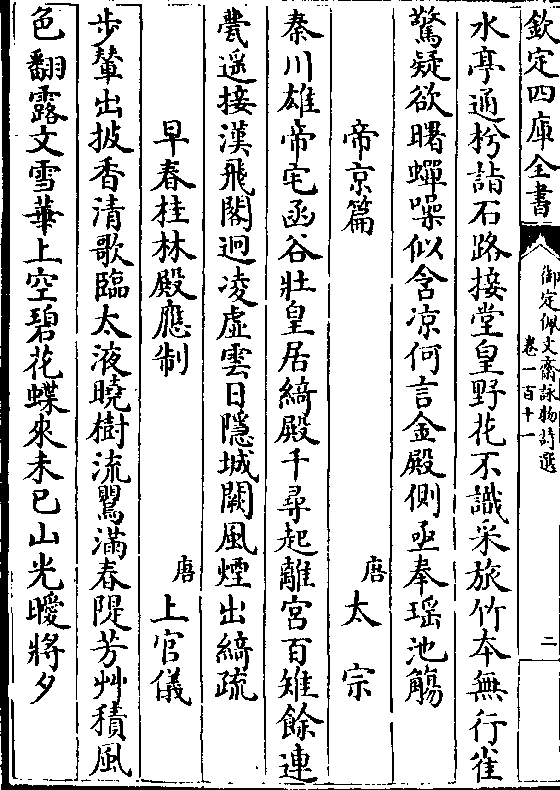 欽定四庫全書
御定佩文齋詠物詩選
卷一百十一
二
水亭通枍詣石路接堂皇野花不識采旅竹本無行雀
驚疑欲曙蟬噪似含凉何言金殿側亟奉瑶池觴
帝京篇
唐太宗
秦川雄帝宅函谷壯皇居綺殿千尋起離宮百雉餘連
甍遥接漢飛閣迥凌虛雲日隱城闕風煙出綺疏
早春桂林殿應制
唐上官儀
步輦出披香清歌臨太液曉樹流鸎滿春隄芳艸積風
色翻露文雪華上空碧花蝶來未已山光曖將夕